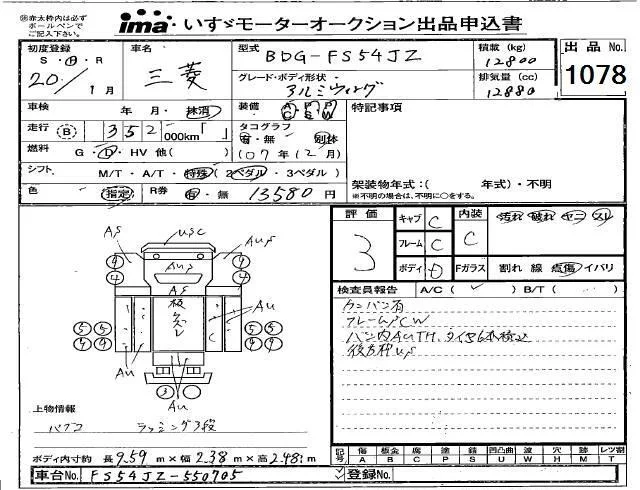 ㊟赤太枠内は必ず
ボールペンで
ご記入下さい。
ima いすゞモーターオークション出品申込書
初度登録
S・H・R
20 / 1月
車名
三菱
型式
BDG-FS54JZ
グレード・ボディ形状
アルミウィング
積載 (kg)
12800
排気量 (cc)
12880
出品 No.
1078
車検 年 月・抹消
装備 A/C P/S P/W
特記事項
走行 B 352 000km「 」
タコグラフ
有・無 別体
(07年12月)
燃料 G・L・HV 他( )
シフト M/T・A/T・特殊(2ペダル・3ペダル)
色 指定 R券 有・無 13580 円
架装物年式：( 年式)・不明
※不明の場合は、不明に○をする。
評価
3
キャブ C
フレーム C
ボディ D
内装 C
汚れ 破れ ヤニ スレ
Fガラス 割れ 線 点傷 イバリ
検査員報告 A/C ( ✓ ) B/T ( )
フレームPCW
後方枠US
AS USC AUS
AUS
AS
板
AU
AU
AU
4 4
4 4
5 5 5 5
4 4 4 4
3
上物情報
パブコ ラッシング3段
ボディ内寸約 長 9.59 m×幅 2.38 m×高 2.48 m
記号 傷 板金 腐 塗 錆 凹凸曲 波 穴 跡 レツ割
A B C P S U W H M T
車台No. FS54JZ-550705
登録No.